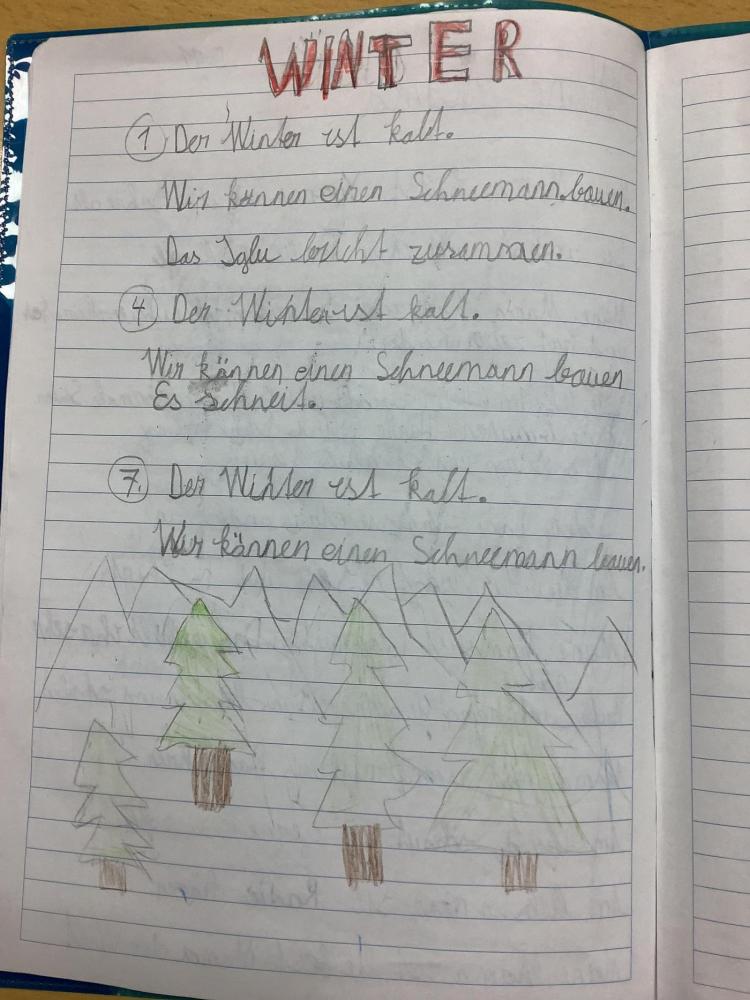 WINTER
① Der Winter ist kalt.
Wir können einen Schneemann bauen.
Das Iglu bricht zusammen.
④ Der Winter ist kalt.
Wir kännen einen Schneemann bauen
Es schneit.
⑦. Der Winter ist kalt.
Wir kännen einen Schneemann bauen.